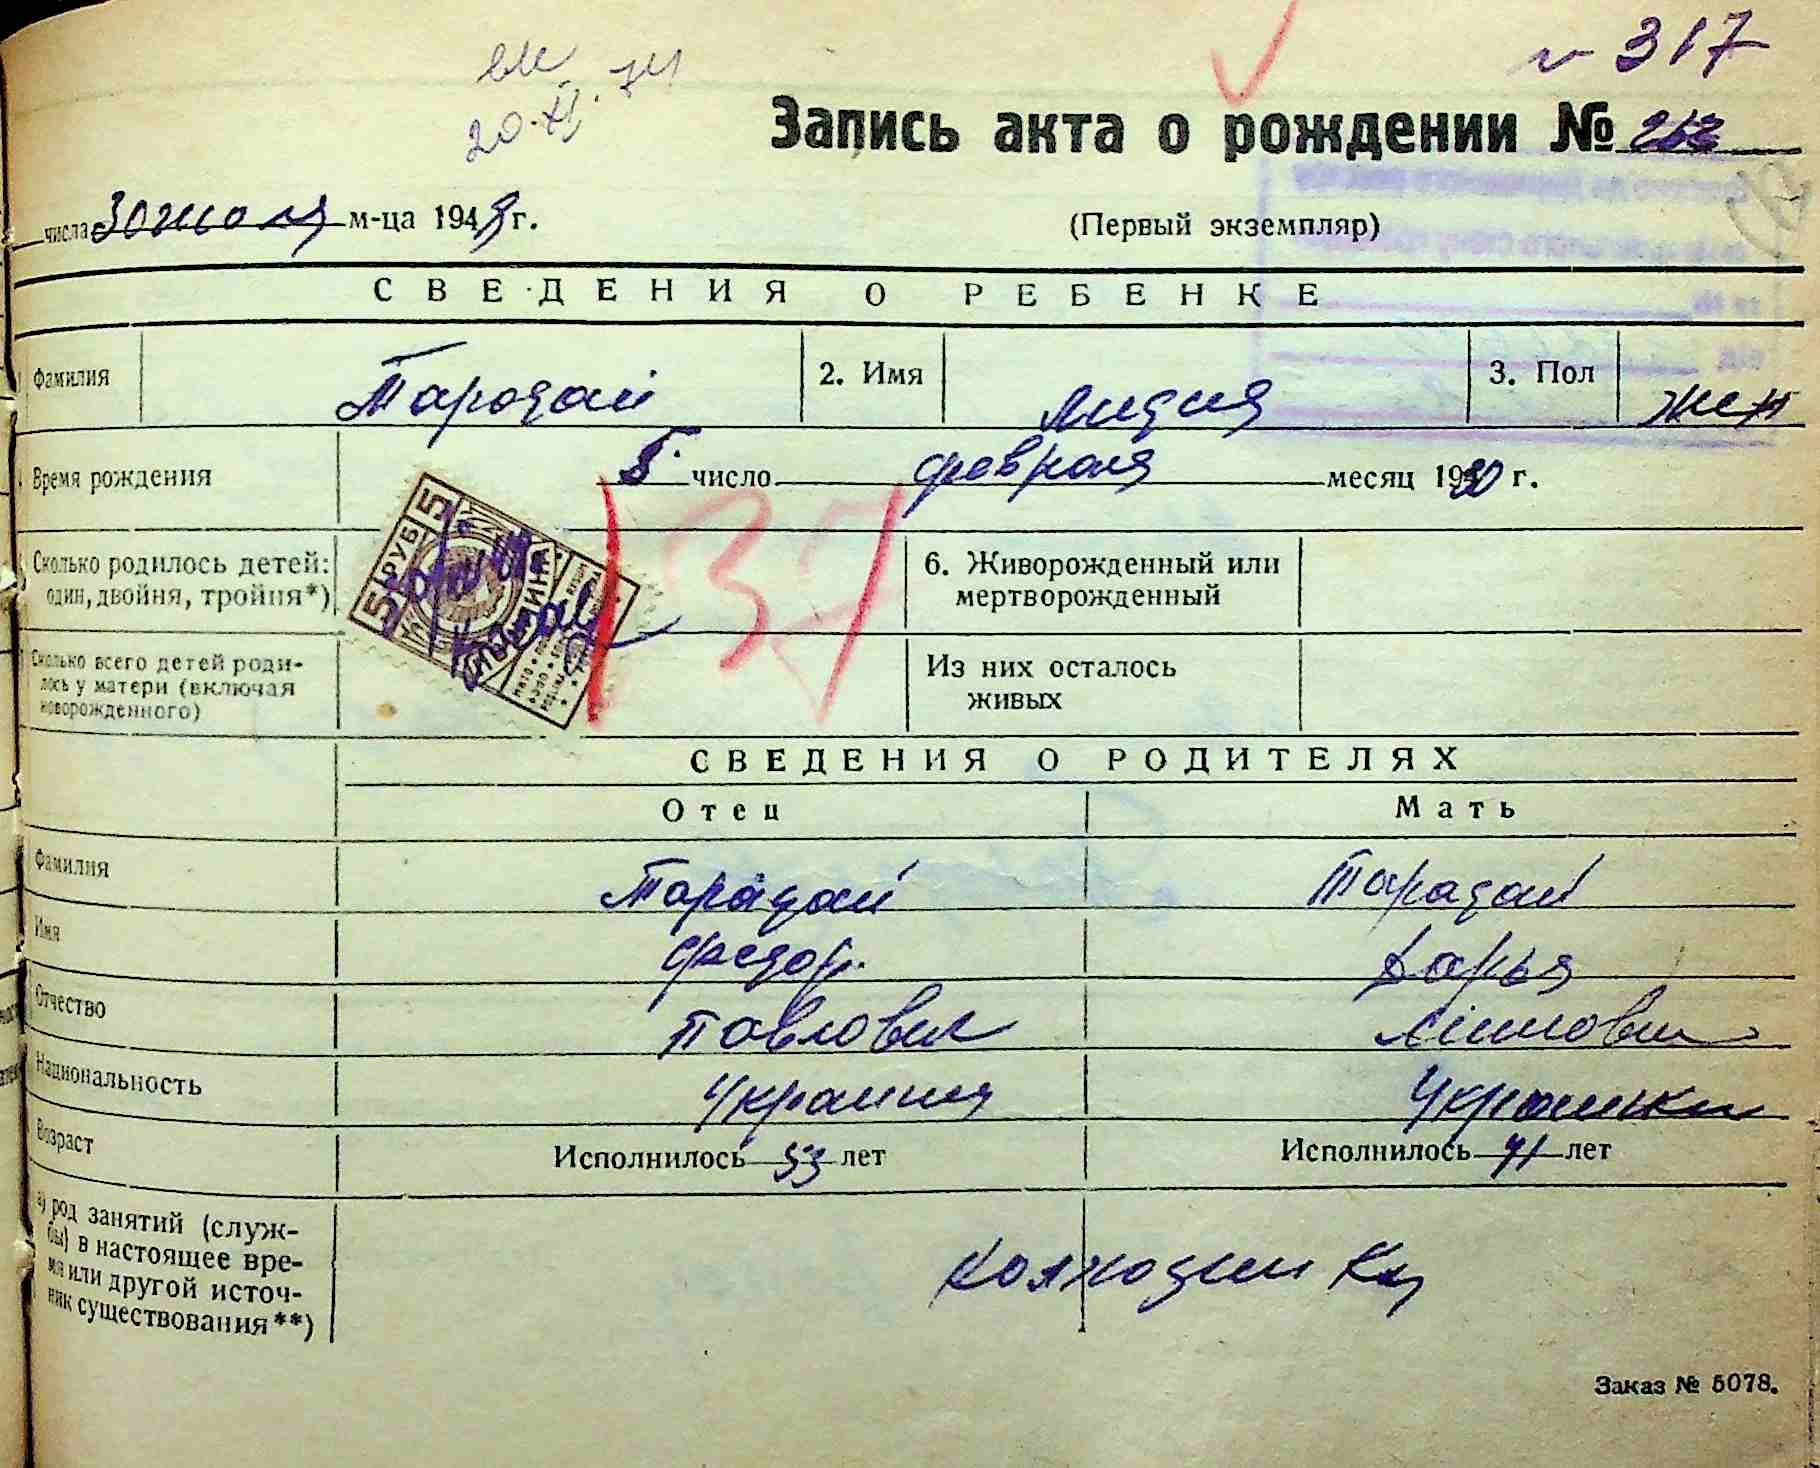 № 317
20·XI·74
Запись акта о рождении №
числа 30 июля м-ца 1948 г. (Первый экземпляр)
СВЕДЕНИЯ О РЕБЕНКЕ
Фамилия Тарадай 2. Имя Лидия 3. Пол жен
Время рождения 5 число февраля месяц 1930 г.
5 РУБ 5
37
Сколько родилось детей: один, двойня, тройня*)
6. Живорожденный или мертворожденный
Сколько всего детей родилось у матери (включая новорожденного)
Из них осталось живых
СВЕДЕНИЯ О РОДИТЕЛЯХ
Отец Мать
Фамилия Тарадай Тарадай
Имя Федор Дарья
Отчество Павлович
Национальность Украинец Украинка
Возраст Исполнилось 53 лет Исполнилось 41 лет
а) род занятий (службы) в настоящее время или другой источник существования**)
Колхозники
Заказ № 5078.